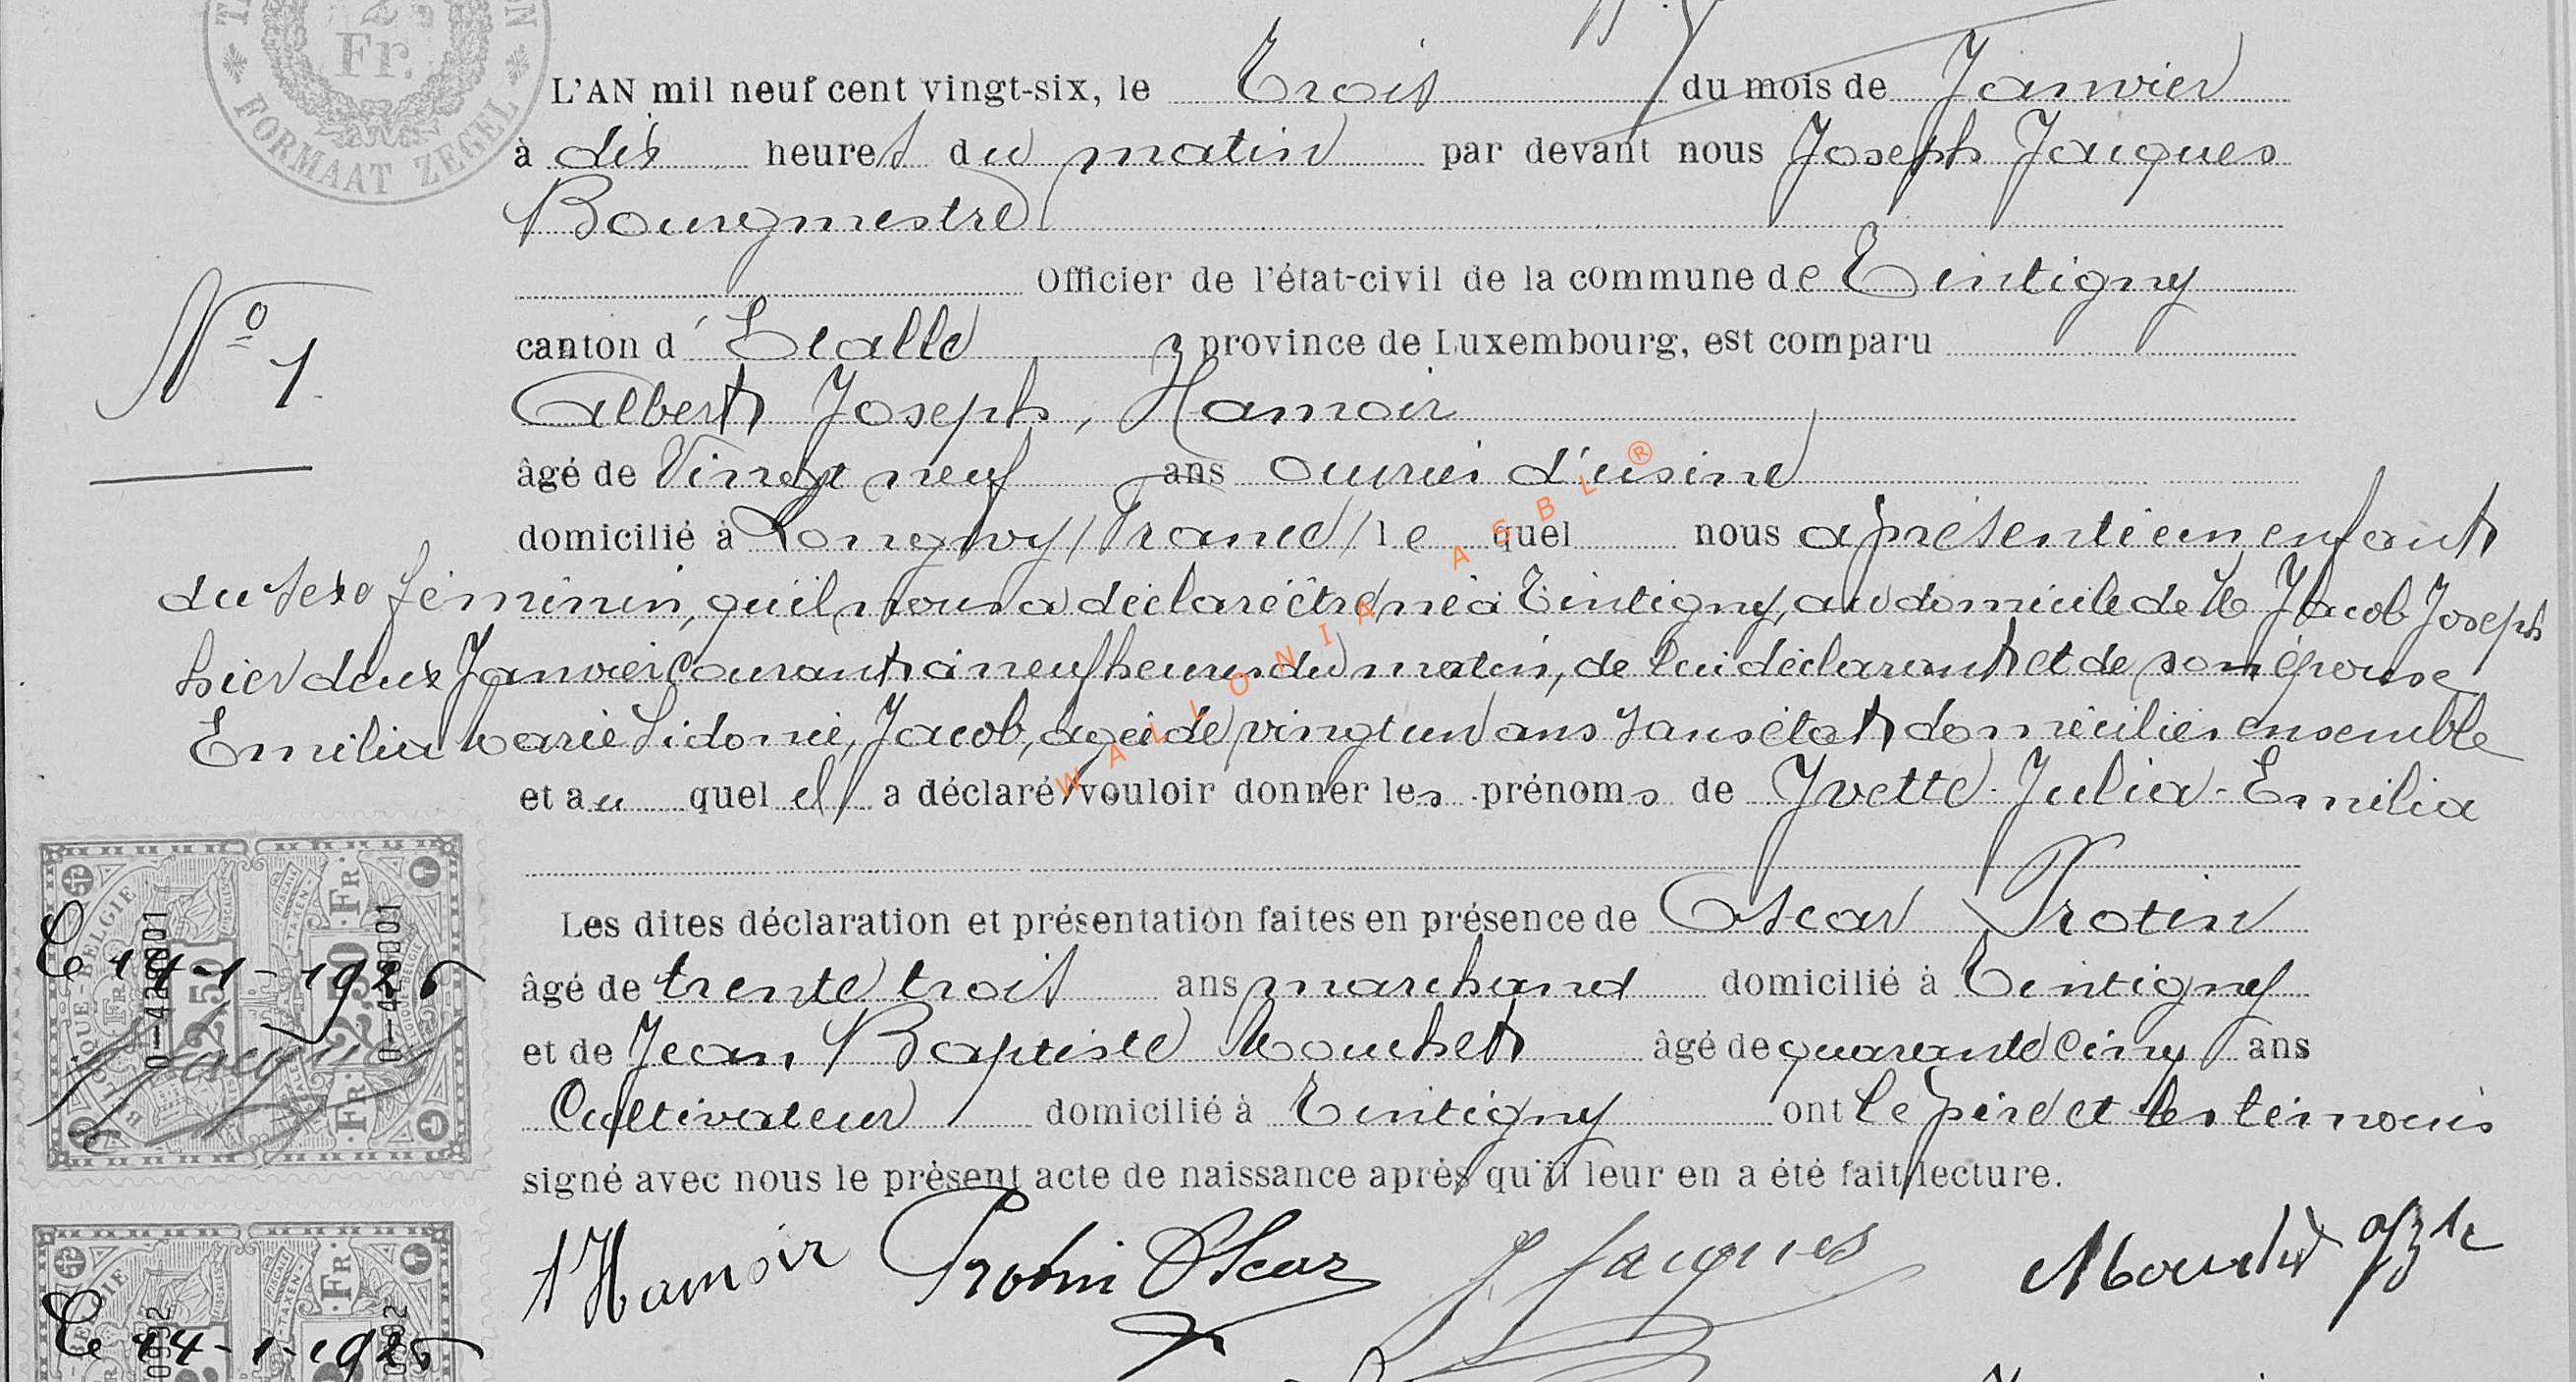 2
Fr.
FORMAAT ZEGEL
L'AN mil neuf cent vingt-six, le Trois du mois de Janvier
à dix heures du matin par devant nous Joseph Jacques
Bourgmestre
Officier de l'état-civil de la commune de Tintigny
canton d'Etalle province de Luxembourg, est comparu
N° 1.
Albert Joseph, Hamoir
âgé de Vingt neuf ans ouvrier d'usine
domicilié à Longwy (France) le quel nous a présenté un enfant
du sexe féminin, qu'il nous a déclaré être né à Tintigny, au domicile de M Jacob Joseph
hier deux Janvier courant à neuf heures du matin, de lui déclarant et de son épouse
Emilia Marie Sidonie, Jacob, agée de vingt un ans sans état domiciliés ensemble
et au quel il a déclaré vouloir donner les prénoms de Yvette-Julia-Emilia
Les dites déclaration et présentation faites en présence de Oscar Protin
âgé de trente trois ans marchand domicilié à Tintigny
et de Jean Baptiste Mouchet âgé de quarante cinq ans
Cultivateur domicilié à Tintigny ont le père et les témoins
signé avec nous le présent acte de naissance après qu'il leur en a été fait lecture.
Hamoir Protin Oscar J Jacques Mouchet
WALLONIA ASBL®
BELGIQUE-BELGIE
2,50 2,50 FR.
T 14-1-1926
Jacques
T 14-1-1926